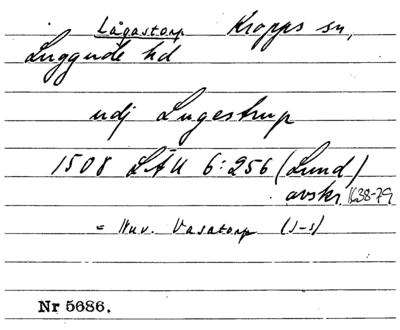 Lågastorp Kropps sn,
Luggude hd
udj Lugestrup
1508 LÄU 6:256 (Lund)
avskr. 1638-79
= Nuv. Vasatorp (J-s)
Nr 5686.